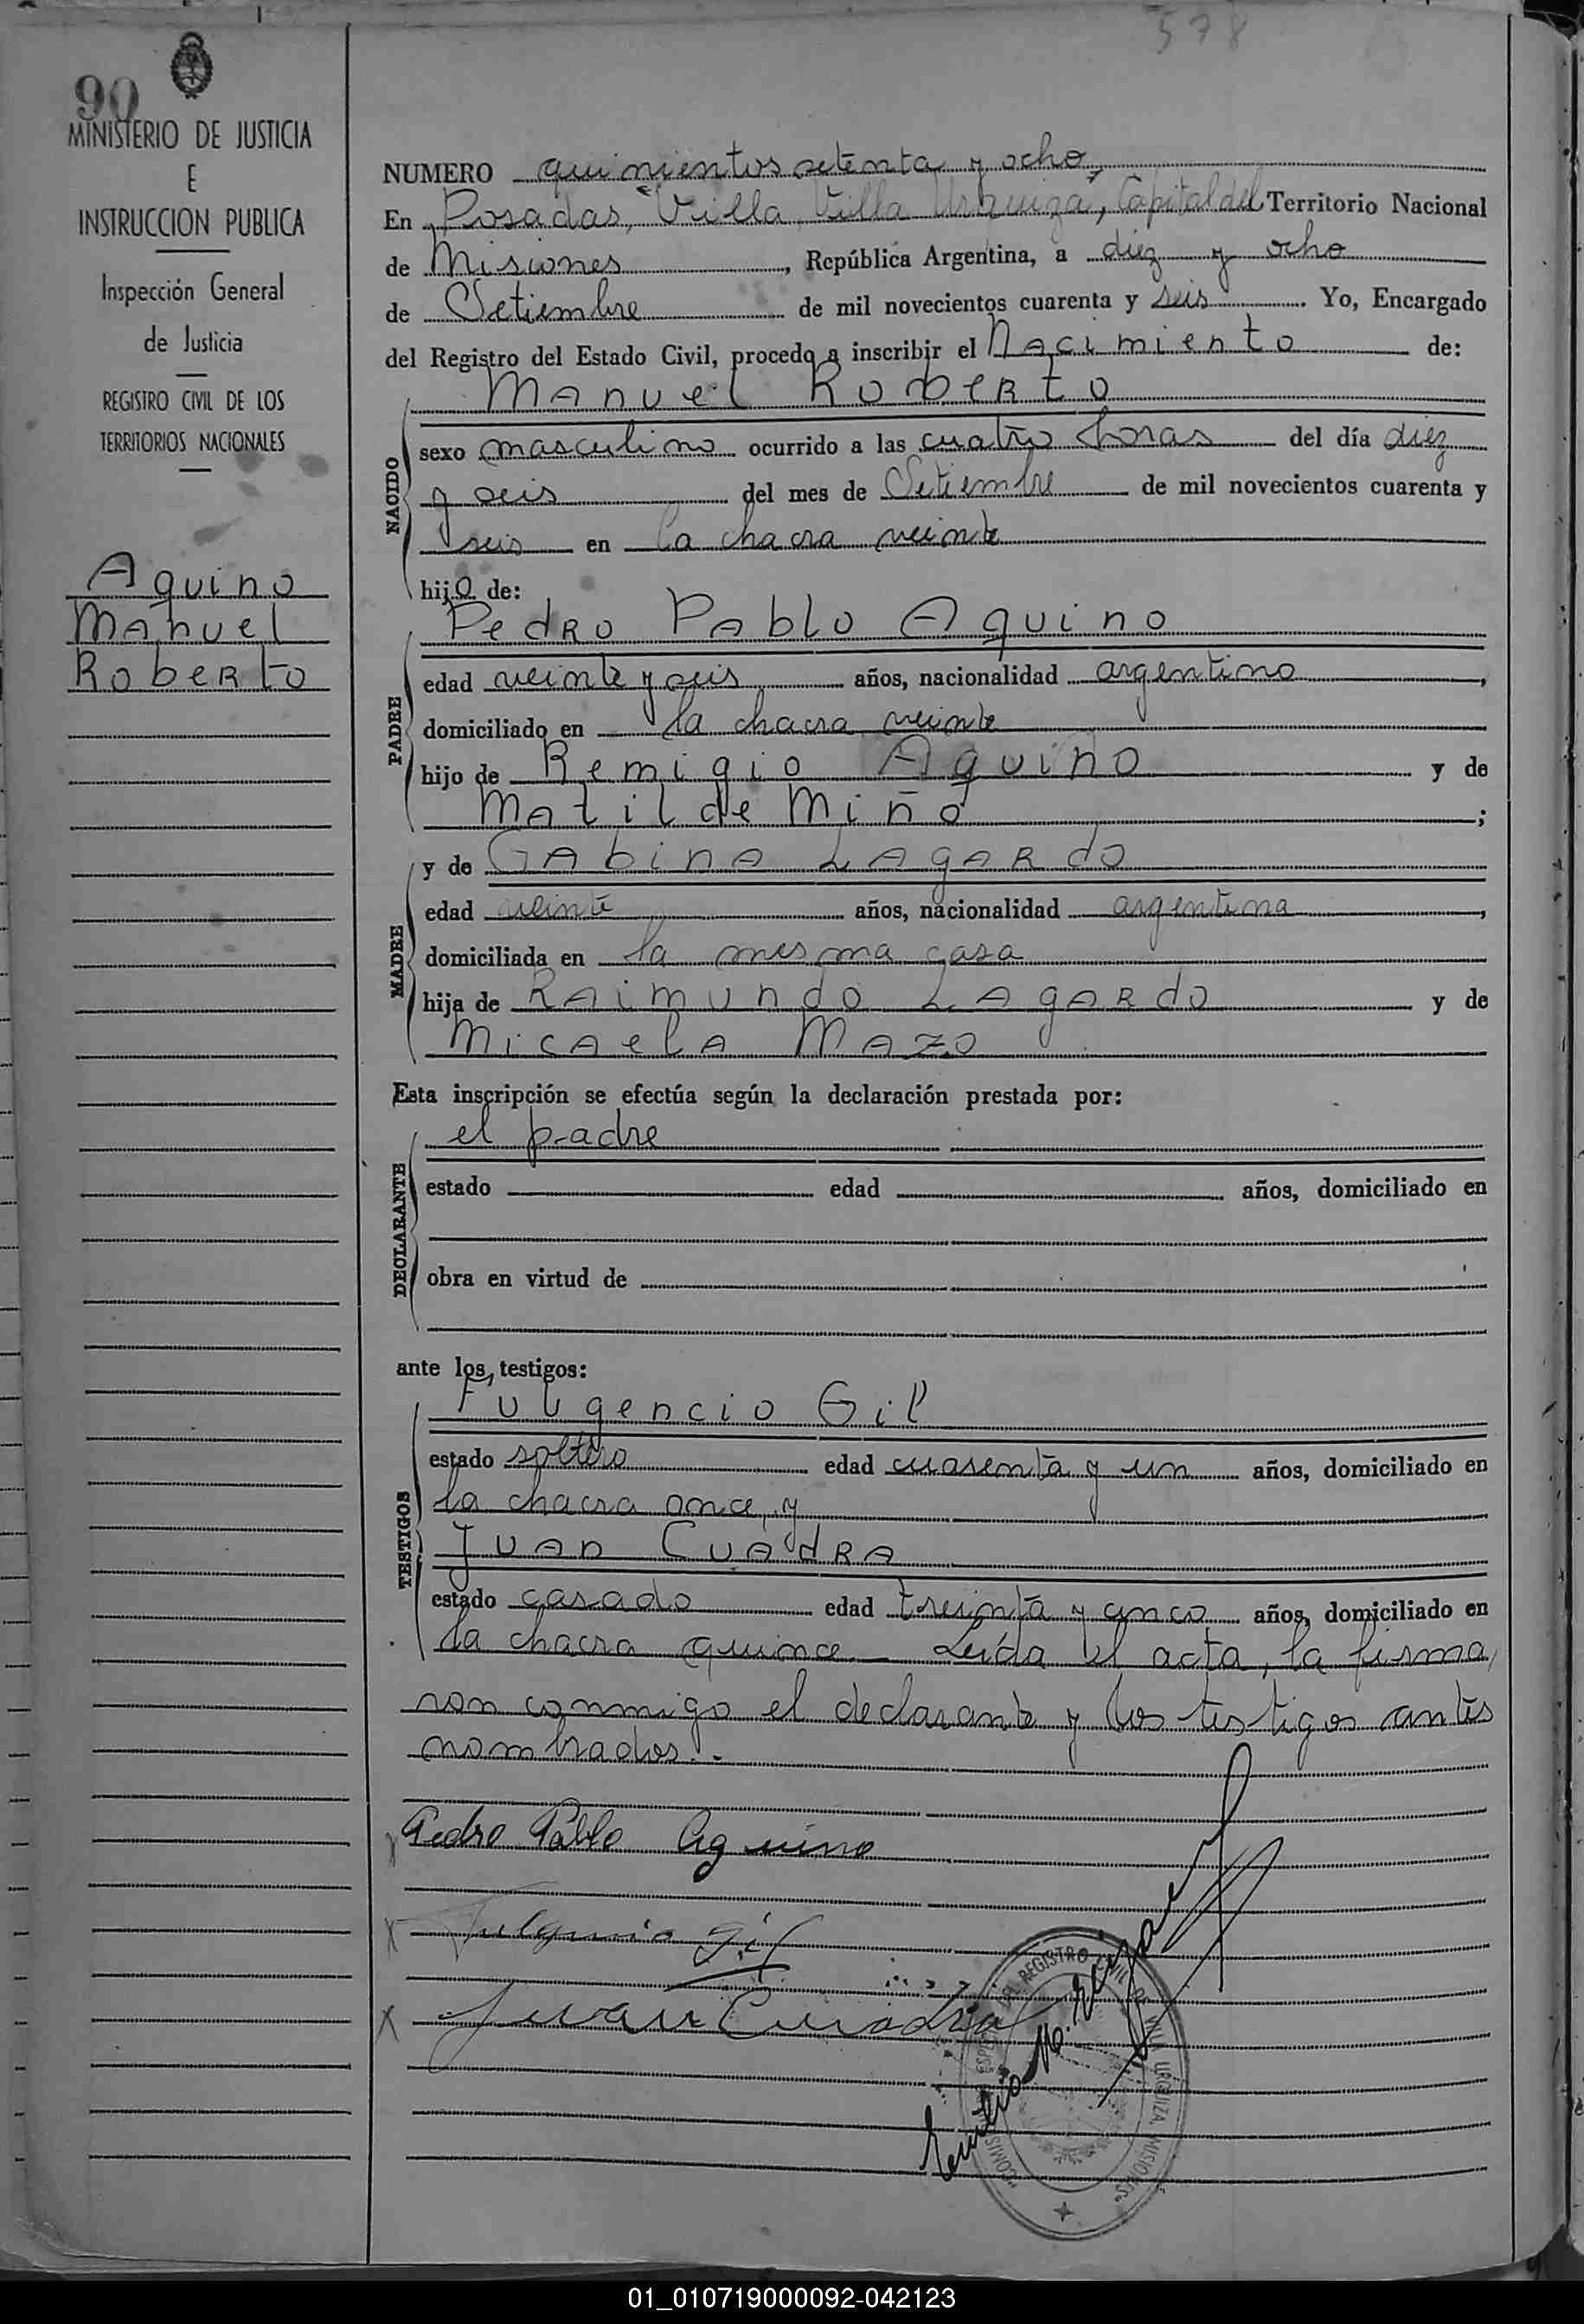 578
90
MINISTERIO DE JUSTICIA
E
INSTRUCCION PUBLICA
Inspección General
de Justicia
REGISTRO CIVIL DE LOS
TERRITORIOS NACIONALES
Aquino
Manuel
Roberto
NUMERO quinientos setenta y ocho
En Posadas, "Villa Villa Urquiza", Capital del Territorio Nacional
de Misiones, República Argentina, a diez y ocho
de Setiembre de mil novecientos cuarenta y seis. Yo, Encargado
del Registro del Estado Civil, procedo a inscribir el Nacimiento de:
Manuel Roberto
NACIDO
sexo masculino ocurrido a las cuatro horas del día diez
y seis del mes de Setiembre de mil novecientos cuarenta y
seis en la chacra veinte
hijo de:
Pedro Pablo Aquino
PADRE
edad veinte y seis años, nacionalidad argentino,
domiciliado en la chacra veinte
hijo de Remigio Aquino y de
Matilde Miño;
y de Gabina Lagardo
MADRE
edad veinte años, nacionalidad argentina,
domiciliada en la mesma casa
hija de Raimundo Lagardo y de
Micaela Mazo
Esta inscripción se efectúa según la declaración prestada por:
el padre
DECLARANTE
estado edad años, domiciliado en
obra en virtud de
ante los testigos:
Fulgencio Gil
TESTIGOS
estado soltero edad cuarenta y un años, domiciliado en
la chacra once, y
Juan Cuadra
estado casado edad treinta y cinco años, domiciliado en
la chacra quince. Leída el acta, la firma,
ron conmigo el declarante y los testigos antes
nombrados..
Pedro Pablo Aquino
x Fulgencio Gil
x Juan Cuadra
REGISTRO CIVIL
VILLA URQUIZA, MISIONES
01_010719000092-042123